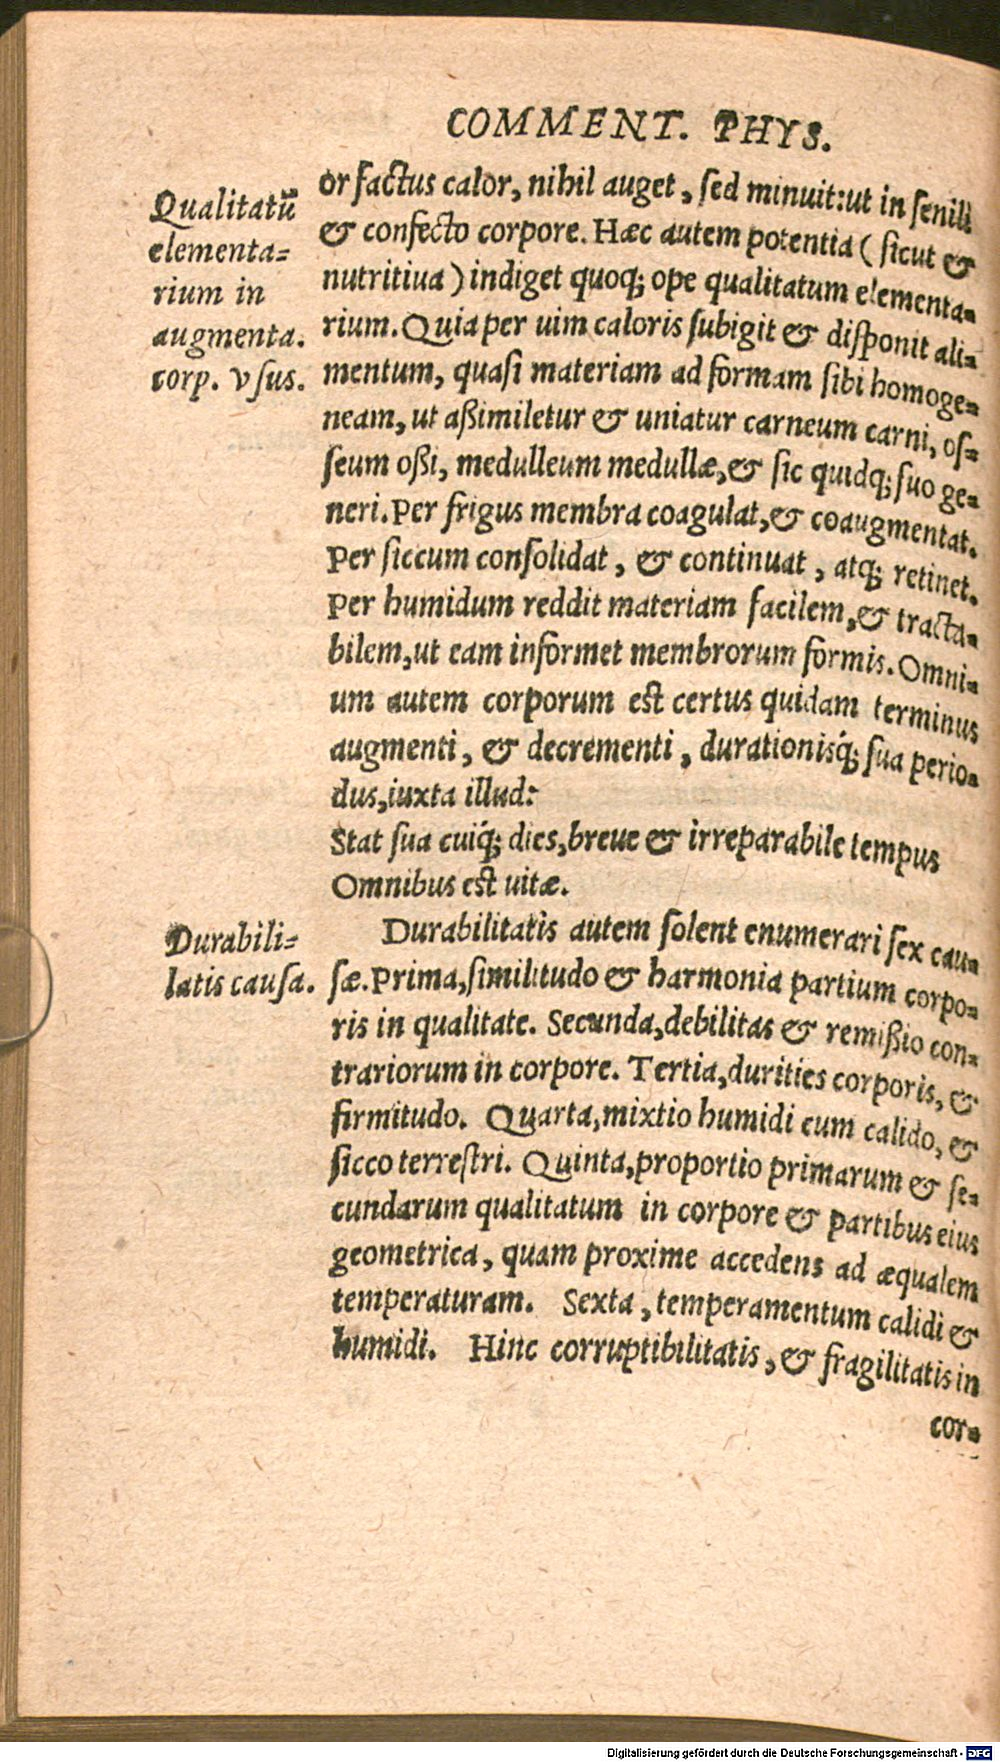 COMMENT. PHYS.
Qualitatũ
elementa-
rium in
augmenta.
corp. vsus.
or factus calor, nihil auget, sed minuit: ut in senili
& confecto corpore. Hæc autem potentia ( sicut &
nutritiua ) indiget quoq; ope qualitatum elementa-
rium. Quia per uim caloris subigit & disponit ali-
mentum, quasi materiam ad formam sibi homoge-
neam, ut aßimiletur & uniatur carneum carni, os-
seum oßi, medulleum medullæ, & sic quidq; suo ge-
neri. Per frigus membra coagulat, & coaugmentat.
Per siccum consolidat, & continuat, atq; retinet.
Per humidum reddit materiam facilem, & tracta-
bilem, ut eam informet membrorum formis. Omni-
um autem corporum est certus quidam terminus
augmenti, & decrementi, durationisq́; sua perio-
dus, iuxta illud:
Stat sua cuiq́; dies, breue & irreparabile tempus
Omnibus est uitæ.
Durabili-
tatis causa.
Durabilitatis autem solent enumerari sex cau-
sæ. Prima, similitudo & harmonia partium corpo-
ris in qualitate. Secunda, debilitas & remißio con-
trariorum in corpore. Tertia, durities corporis, &
firmitudo. Quarta, mixtio humidi cum calido, &
sicco terrestri. Quinta, proportio primarum & se-
cundarum qualitatum in corpore & partibus eius
geometrica, quam proxime accedens ad æqualem
temperaturam. Sexta, temperamentum calidi &
humidi. Hinc corruptibilitatis, & fragilitatis in
cor-
Digitalisierung gefördert durch die Deutsche Forschungsgemeinschaft - DFG